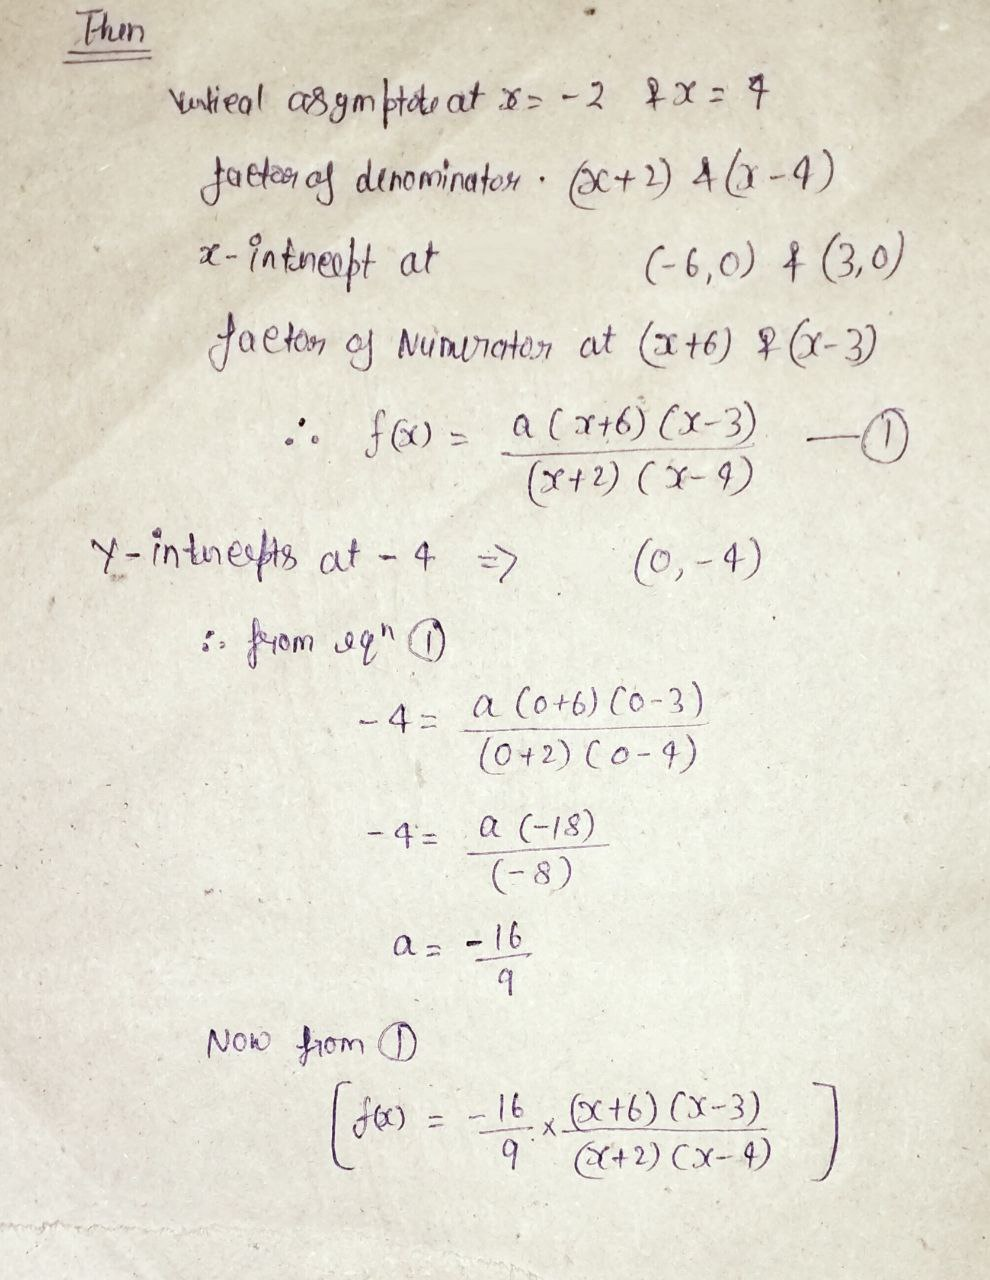 Then
Vertical asymptote at x = -2 & x = 4
factor of denominator. (x+2) & (x-4)
x-intercept at (-6,0) & (3,0)
factor of Numerator at (x+6) & (x-3)
∴ f(x) = a(x+6)(x-3) / (x+2)(x-4) —①
Y-intercepts at -4 ⇒ (0,-4)
∴ from eqⁿ ①
-4 = a(0+6)(0-3) / (0+2)(0-4)
-4 = a(-18) / (-8)
a = -16/9
Now from ①
[f(x) = -16/9 × (x+6)(x-3) / (x+2)(x-4)]